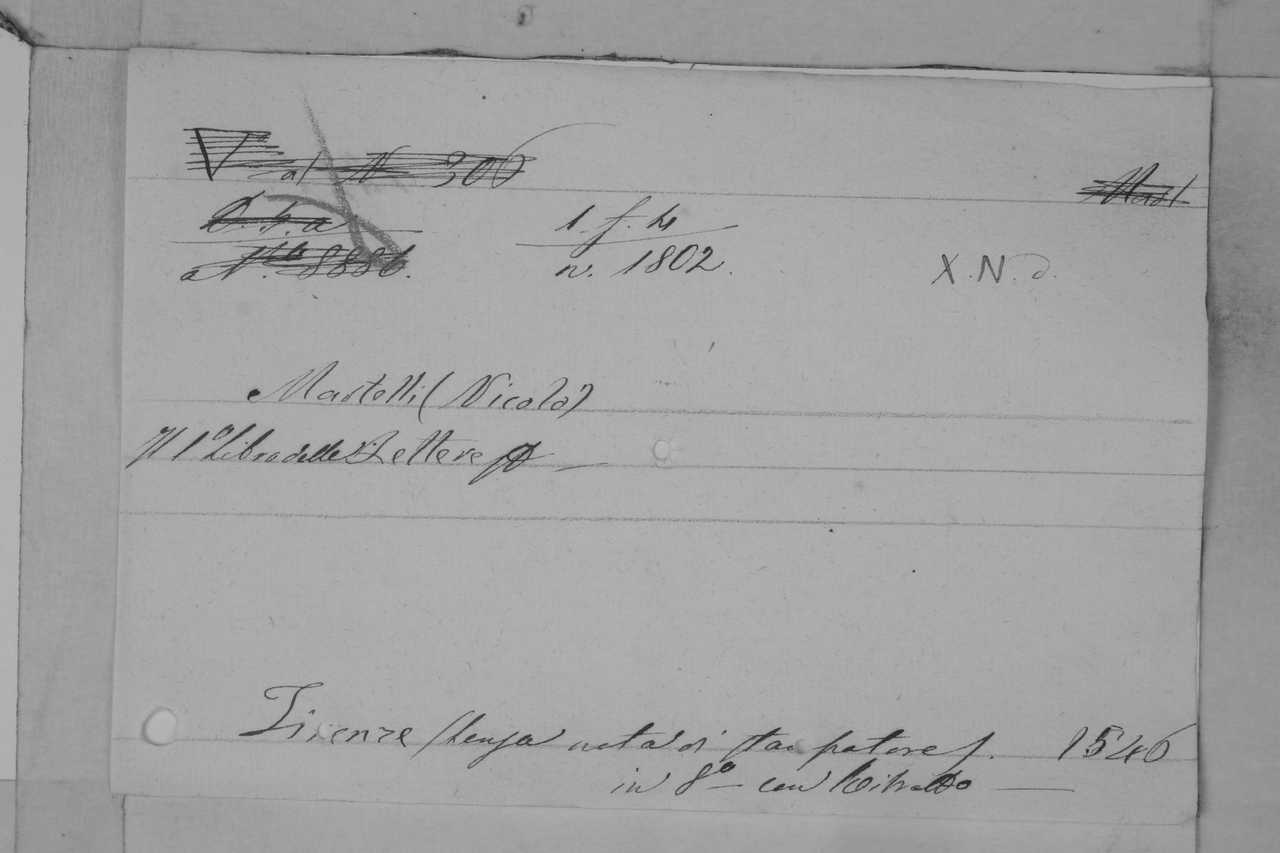 V al N 306
Mart
D. 4. a
1. f. 4
a Nº 8886.
n. 1802.
X. N. d.
Martelli (Nicolò)
Il 1º Libro delle Lettere
Firenze (senza nota di stampatore). 1546
in 8º con Ritratto